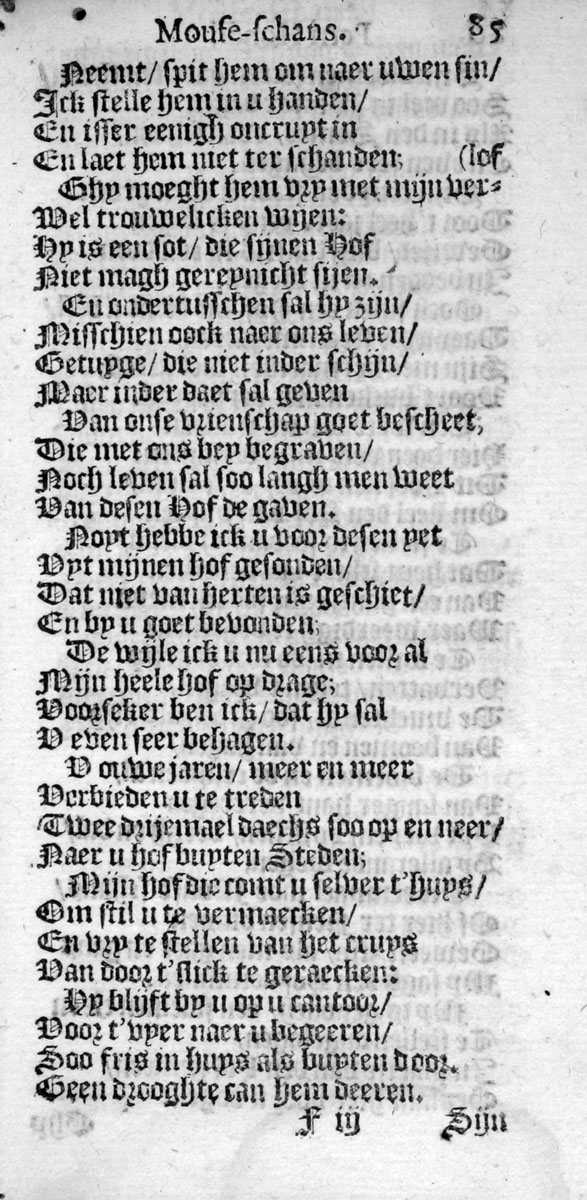 Mouse-schans. 85
Neemt/ spit hem om naer uwen sin/
Ick stelle hem in u handen/
En isser eenigh oncruyt in
En laet hem niet ter schanden; (lof
Ghy moeght hem vry met mijn ver-
Wel trouwelicken wijen:
Hy is een sot/ die sijnen Hof
Niet magh gereynicht sijen.
En ondertusschen sal hy zijn/
Misschien oock naer ons leven/
Getuyge/ die niet inder schijn/
Maer inder daet sal geven
Van onse vrienschap goet bescheet,
Die met ons bey begraven/
Noch leven sal soo langh men weet
Van desen Hof de gaven.
Noyt hebbe ick u voor desen yet
Uyt mijnen hof gesonden/
Dat niet van herten is geschiet/
En by u goet bevonden;
De wijle ick u nu eens voor al
Mijn heele hof op drage;
Voorseker ben ick/ dat hy sal
V even seer behagen.
V ouwe jaren/ meer en meer
Verbieden u te treden
Twee drijemael daechs soo op en neer/
Naer u hof buyten Steden;
Mijn hof die comt u selver t'huys/
Om stil u te vermaecken/
En vry te stellen van het cruys
Van door t'slick te geraecken:
Hy blijft by u op u cantoor/
Voor t'vyer naer u begeeren/
Soo fris in huys als buyten door.
Geen drooghte can hem deeren.
F iij Sijn